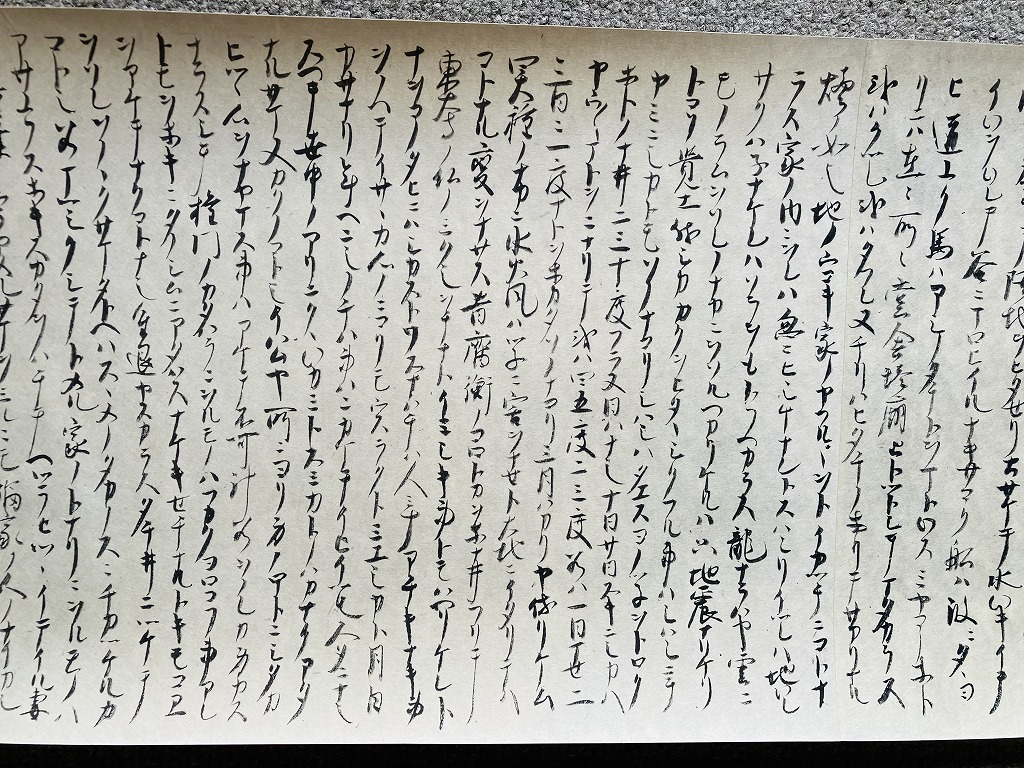 陸地ヲヒタセリ土サケテ水ワキイテ
イワヲワレテ谷ニマロヒイルナキサコク船ハ波ニタヽヨ
ヒ道ユク馬ハアシノタチトヲマトワスミヤコノホト
リニハ在々所々堂舎塔廟ヒトツトシテマタカラス
或ハクツレ或ハタフレヌチリハヒタチノホリテサカリナル
煙ノ如シ地ノウコキ家ノヤフルヽヲトイカツチニコトナ
ラス家ノ内ニヲレハ忽ニヒシケナントスハシリイツレハ地ワレ
サクハネナケレハソラヲモトフヘカラス龍ナラハヤ雲ニ
モノラムヲソレノナカニヲソルヘカリケルハ只地震ナリケリ
トコソ覚エ侍シカカクヲヒタヽシクフル事ハシハシニテ
ヤミニシカトモソノナコリシハシハタエスヨノツネヲトロク
ホトノナヰ二三十度フラヌ日ハナシ十日廿日スキニシカハ
ヤウヤウマトヲニナリテ或ハ四五度二三度若ハ一日マセ二
三日ニ一度ナトオホカタソノナコリ三月ハカリヤ侍リケム
四大種ノナカニ水火風ハツネニ害ヲナセト大地ニイタリテハ
コトナル変ヲナサス昔斉衡ノコロトカオホナヰフリテ
東大寺ノ仏ノミクシオチナトイミシキ事トモハヘリケレト
ナヲコノタヒニハシカストソスナハチハ人ミナアチキナキ事
ヲノヘテイサヽカ心ノニコリモウスラクトミエシカト月日
カサナリ年ヘニシノチハ事ハニカケテイヒイツル人タニナシ
スヘテ世中ノアリニクヽワカミトスミカトノハカナクアタ
ナルサマ又カクノコトシイハムヤ所ニヨリ身ノホトニシタカ
ヒツヽ心ヲナヤマス事ハアケテ不可計若ヲノレカ身カス
ナラスシテ権門ノカタハラニヲルモノハフカクヨロコフ事アレ
トモヲホキニタノシムニアタハスナケキセチナルトキモコエ
ヲアケテナクコトナシ進退ヤスカラスタチヰニツケテ
ヲソレヲノヽクサマタトヘハスヽメノタカノスニチカツケルカ
コトシ若マツシクシテトメル家ノトナリニヲルモノハ
アサユフスホキスカタヲハチテヘツラヒツヽイテイル妻
サマヲミルニモ福家ノ人ノナイカシ